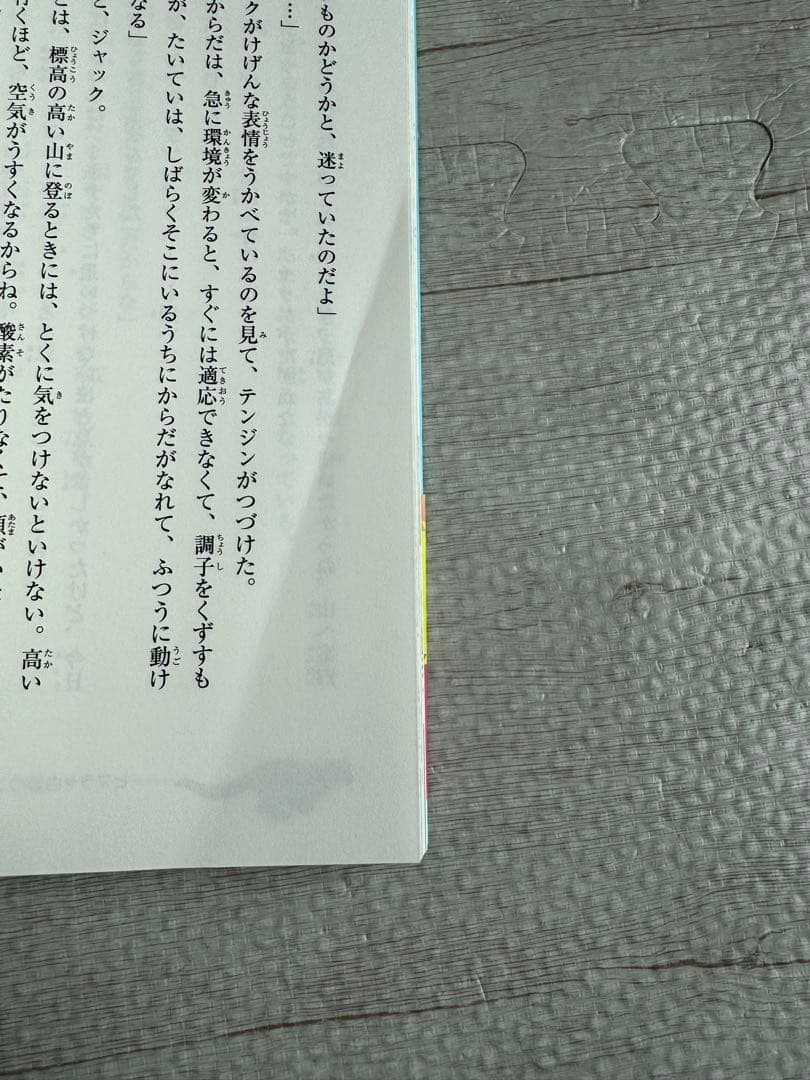 ものかどうかと、迷っていたのだよ」
…」
クがけげんな表情をうかべているのを見て、テンジンがつづけた。
からだは、急に環境が変わると、すぐには適応できなくて、調子をくずすも
が、たいていは、しばらくそこにいるうちにからだがなれて、ふつうに動け
なる」
と、ジャック。
とは、標高の高い山に登るときには、とくに気をつけないといけない。高い
行くほど、空気がうすくなるからね。酸素がたりなくて、頭が